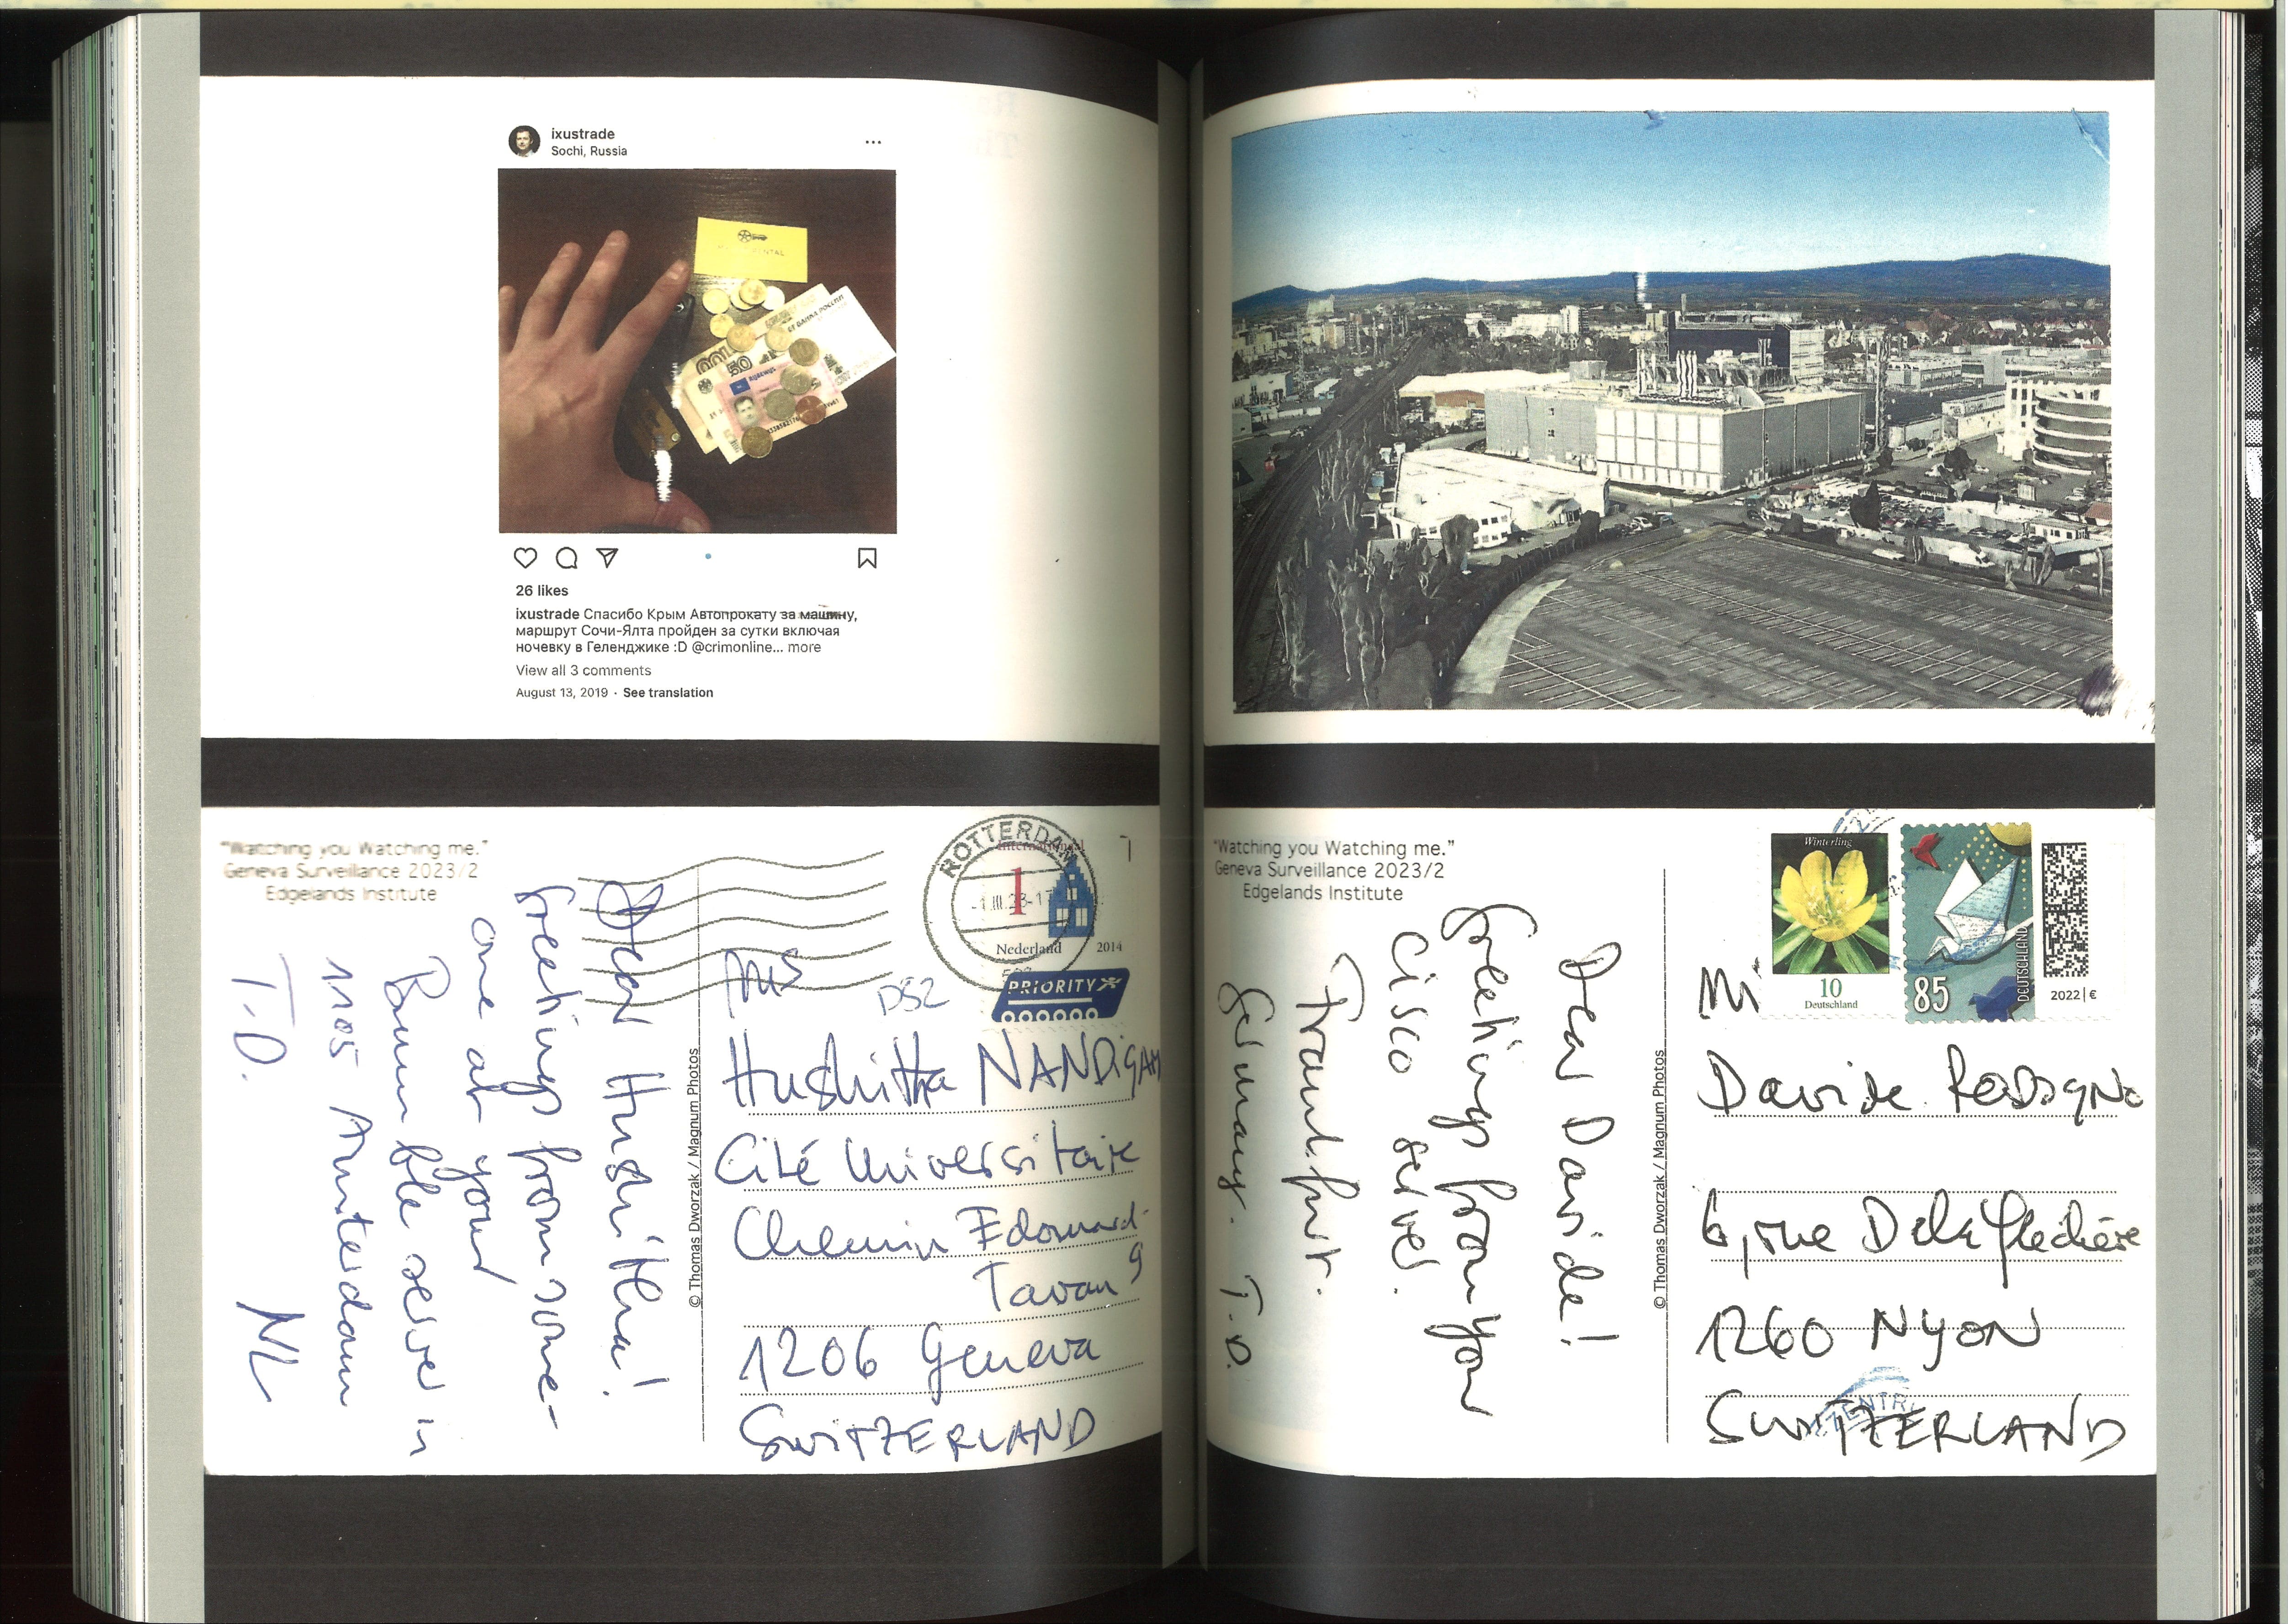 ixustrade
Sochi, Russia
50
RIJBEWIJS
26 likes
ixustrade Спасибо Крым Автопрокату за машину,
маршрут Сочи-Ялта пройден за сутки включая
ночевку в Геленджике :D @crimonline... more
View all 3 comments
August 13, 2019 · See translation
"Watching you Watching me."
Geneva Surveillance 2023/2
Edgelands Institute
Dear Hushitha!
Greetings from some-
one at your
Bumble server in
1105 Amsterdam
T.D. NL
© Thomas Dworzak / Magnum Photos
ROTTERDAM
international
1
Nederland 2014
PRIORITY
DS2
Ms
Hushitha NANDIGAM
Cité Universitaire
Chemin Edouard-
Tavan 9
1206 Geneva
SWITZERLAND
"Watching you Watching me."
Geneva Surveillance 2023/2
Edgelands Institute
Dear Davide!
Greetings from your
Cisco server.
Frankfurt.
Germany. T.D.
© Thomas Dworzak / Magnum Photos
Winterling
10
Deutschland
85
DEUTSCHLAND
2022 | €
Davide Rodogno
6, rue Delafléchère
1260 NYON
SWITZERLAND